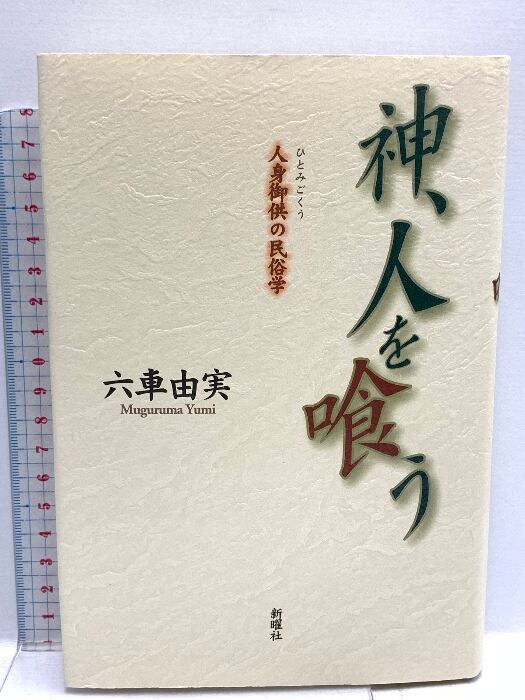 神、人を喰う
ひとみごくう
人身御供の民俗学
六車由実
Muguruma Yumi
新曜社
8
7
6
5
4
3
2
1
0
9
8
7
6
5
4
3
2
1